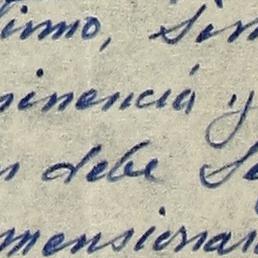 timo, Sin
inencia y
n debe Se
mensionar